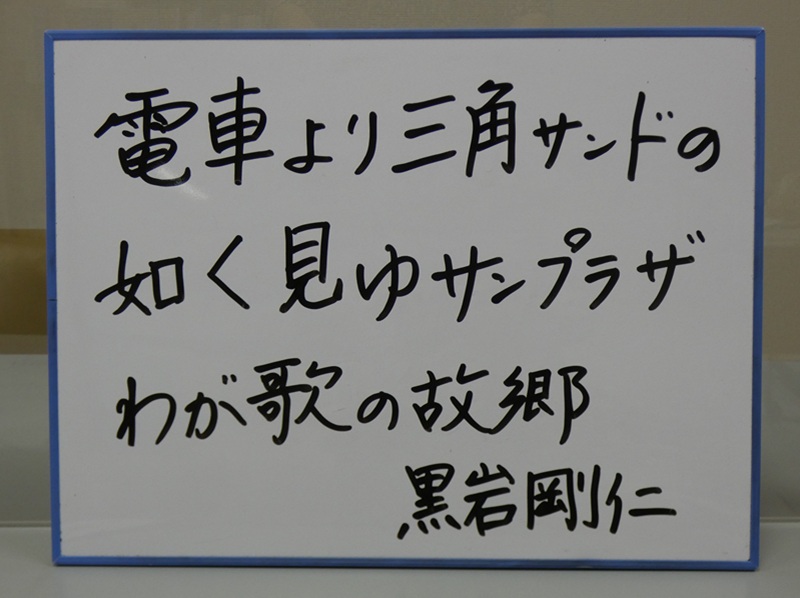 電車より三角サンドの
如く見ゆサンプラザ
わが歌の故郷
黒岩剛仁